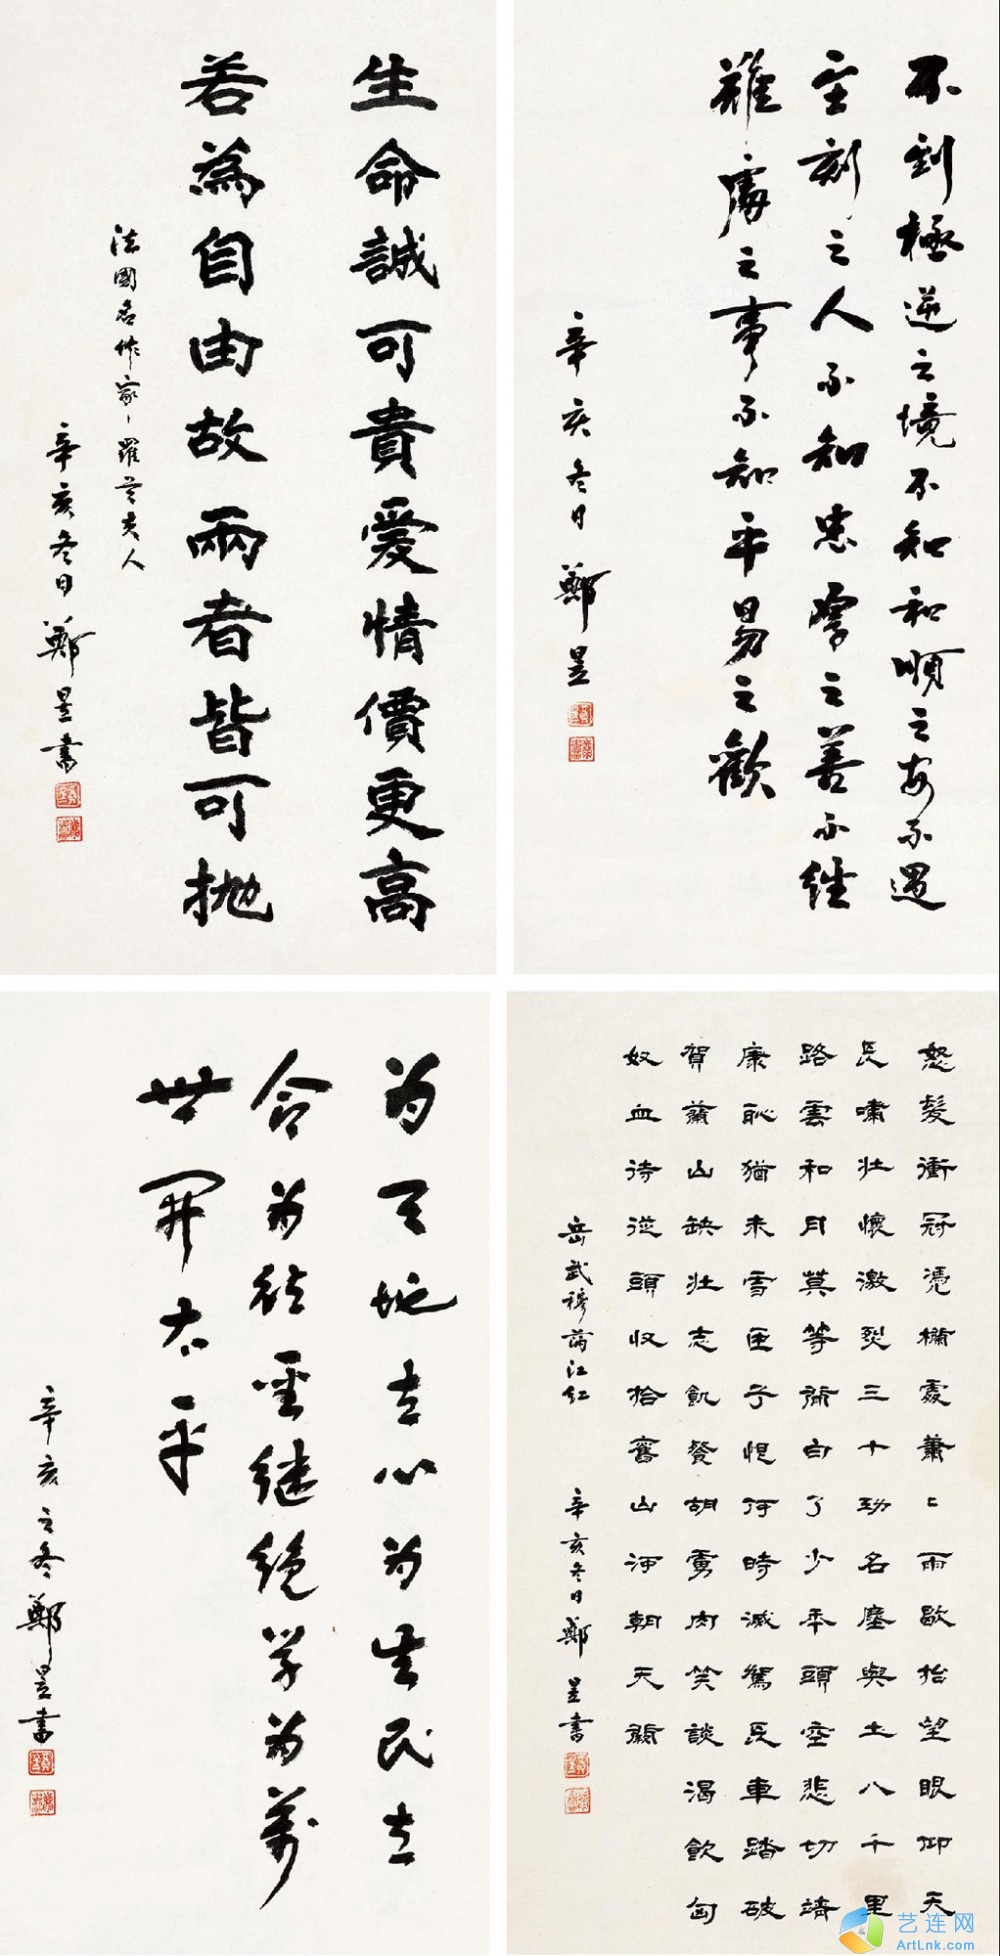 生命誠可貴愛情價更高
若為自由故兩者皆可抛
法國名作家、羅兰夫人
辛亥冬日鄭昱書
不到極逆之境不知和順之安不遇
至刻之人不知忠厚之善不經
難處之事不知平易之歡
辛亥冬日鄭昱
为天地立心为生民立
命为往聖继绝学为萬
世開太平
辛亥之冬鄭昱書
怒髮衝冠憑欄處蕭〻雨歇抬望眼仰天
長嘯壯懷激烈三十功名塵與土八千里
路雲和月莫等閒白了少年頭空悲切靖
康恥猶未雪臣子恨何時滅駕長車踏破
賀蘭山缺壯志飢餐胡虜肉笑談渴飲匈
奴血待從頭收拾舊山河朝天闕
岳武穆滿江紅 辛亥冬日鄭昱書
艺连网
ArtLnk.com